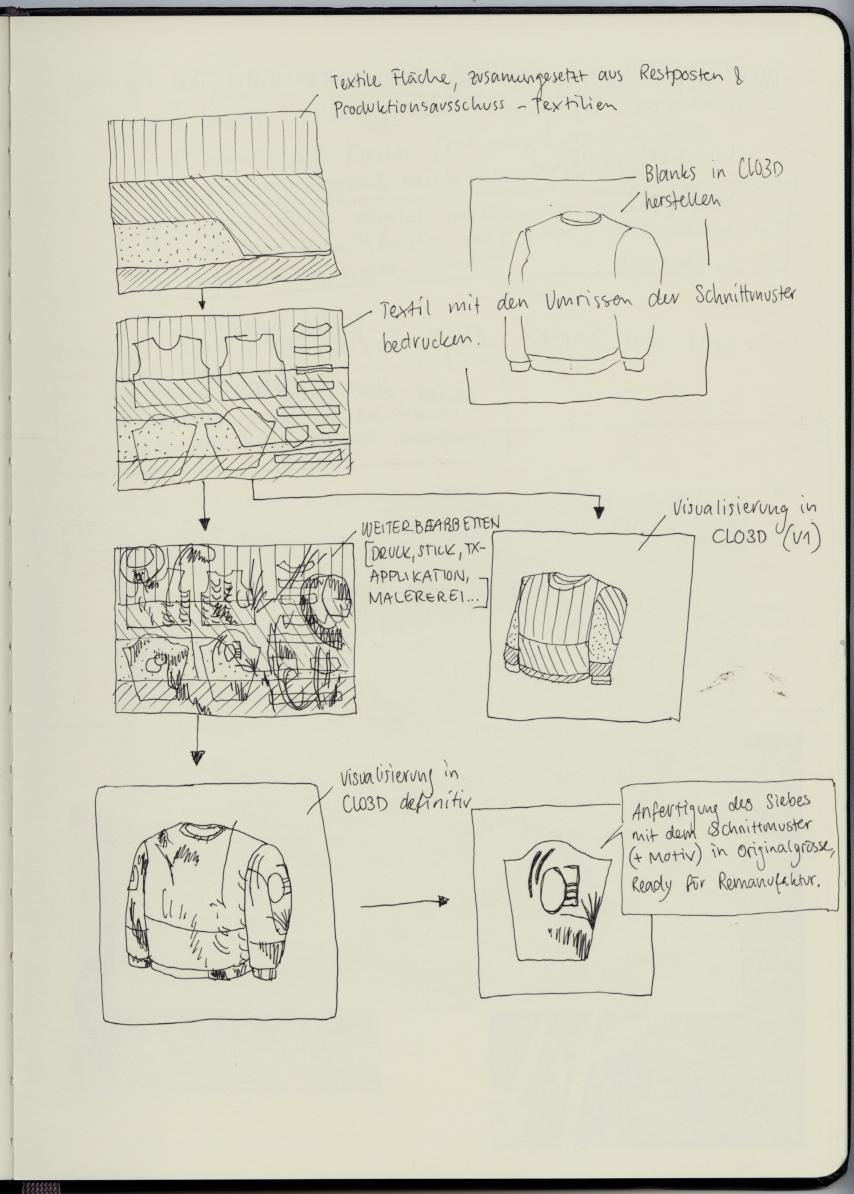 Textile Fläche, zusamungesetzt aus Restposten &
Produktionsausschuss - Textilien
Blanks in CLO3D
herstellen
Textil mit den Umrissen der Schnittmuster
bedrucken.
WEITERBEARBEITEN
[DRUCK, STICK, TX-
APPLIKATION,
MALEREREI...]
Visualisierung in
CLO3D (V1)
Visualisierung in
CLO3D definitiv
Anfertigung des Siebes
mit dem Schnittmuster
(+ Motiv) in Originalgrösse,
Ready für Remanufaktur.